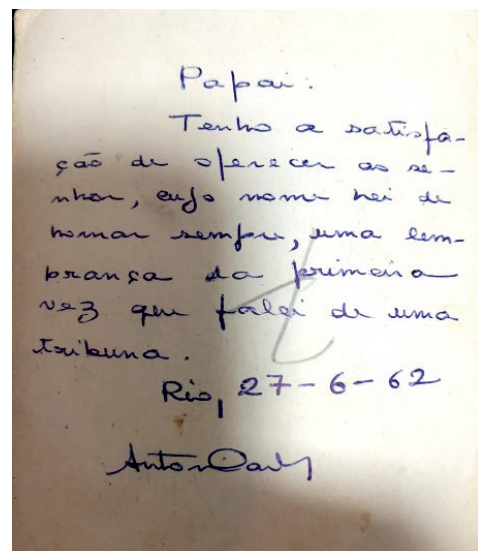 Papai:
Tenho a satisfa-
ção de oferecer ao se-
nhor, cujo nome hei de
honrar sempre, uma lem-
brança da primeira
vez que falei de uma
tribuna.
Rio, 27-6-62